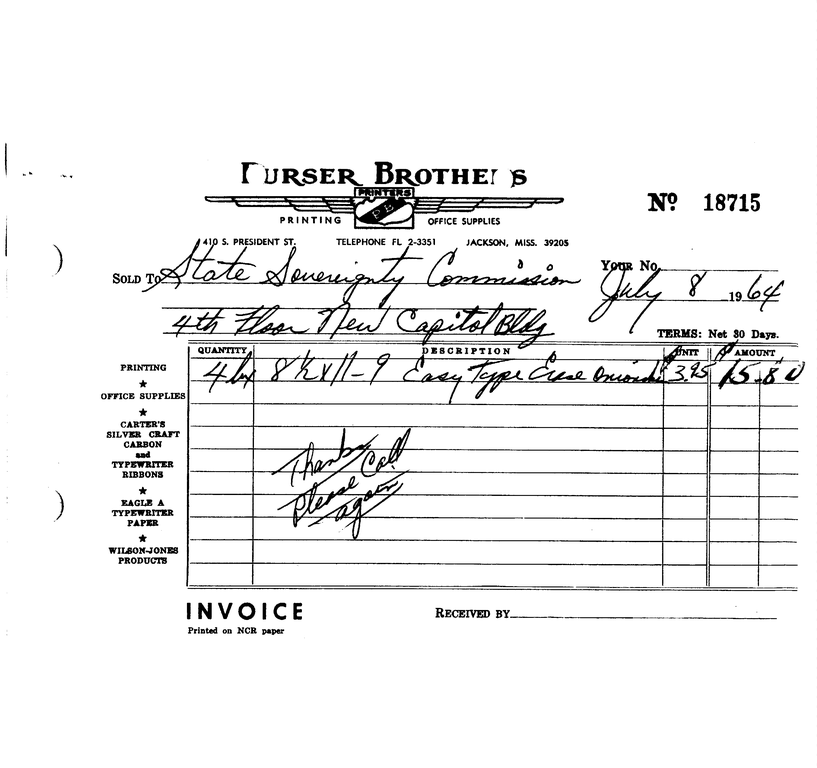 PURSER BROTHERS
PRINTERS
PRINTING OFFICE SUPPLIES
P B
Nº 18715
410 S. PRESIDENT ST. TELEPHONE FL 2-3351 JACKSON, MISS. 39205
SOLD TO State Sovereignty Commission YOUR No.
July 8 1964
4th Floor New Capitol Bldg
TERMS: Net 30 Days.
QUANTITY DESCRIPTION UNIT AMOUNT
4 bx 8 ½ x 11 - 9 Easy Type Erase Onion 3.95 15.80
PRINTING
★
OFFICE SUPPLIES
★
CARTER'S
SILVER CRAFT
CARBON
and
TYPEWRITER
RIBBONS
★
EAGLE A
TYPEWRITER
PAPER
★
WILSON-JONES
PRODUCTS
Thanks
Please Call
again
INVOICE
Printed on NCR paper
RECEIVED BY